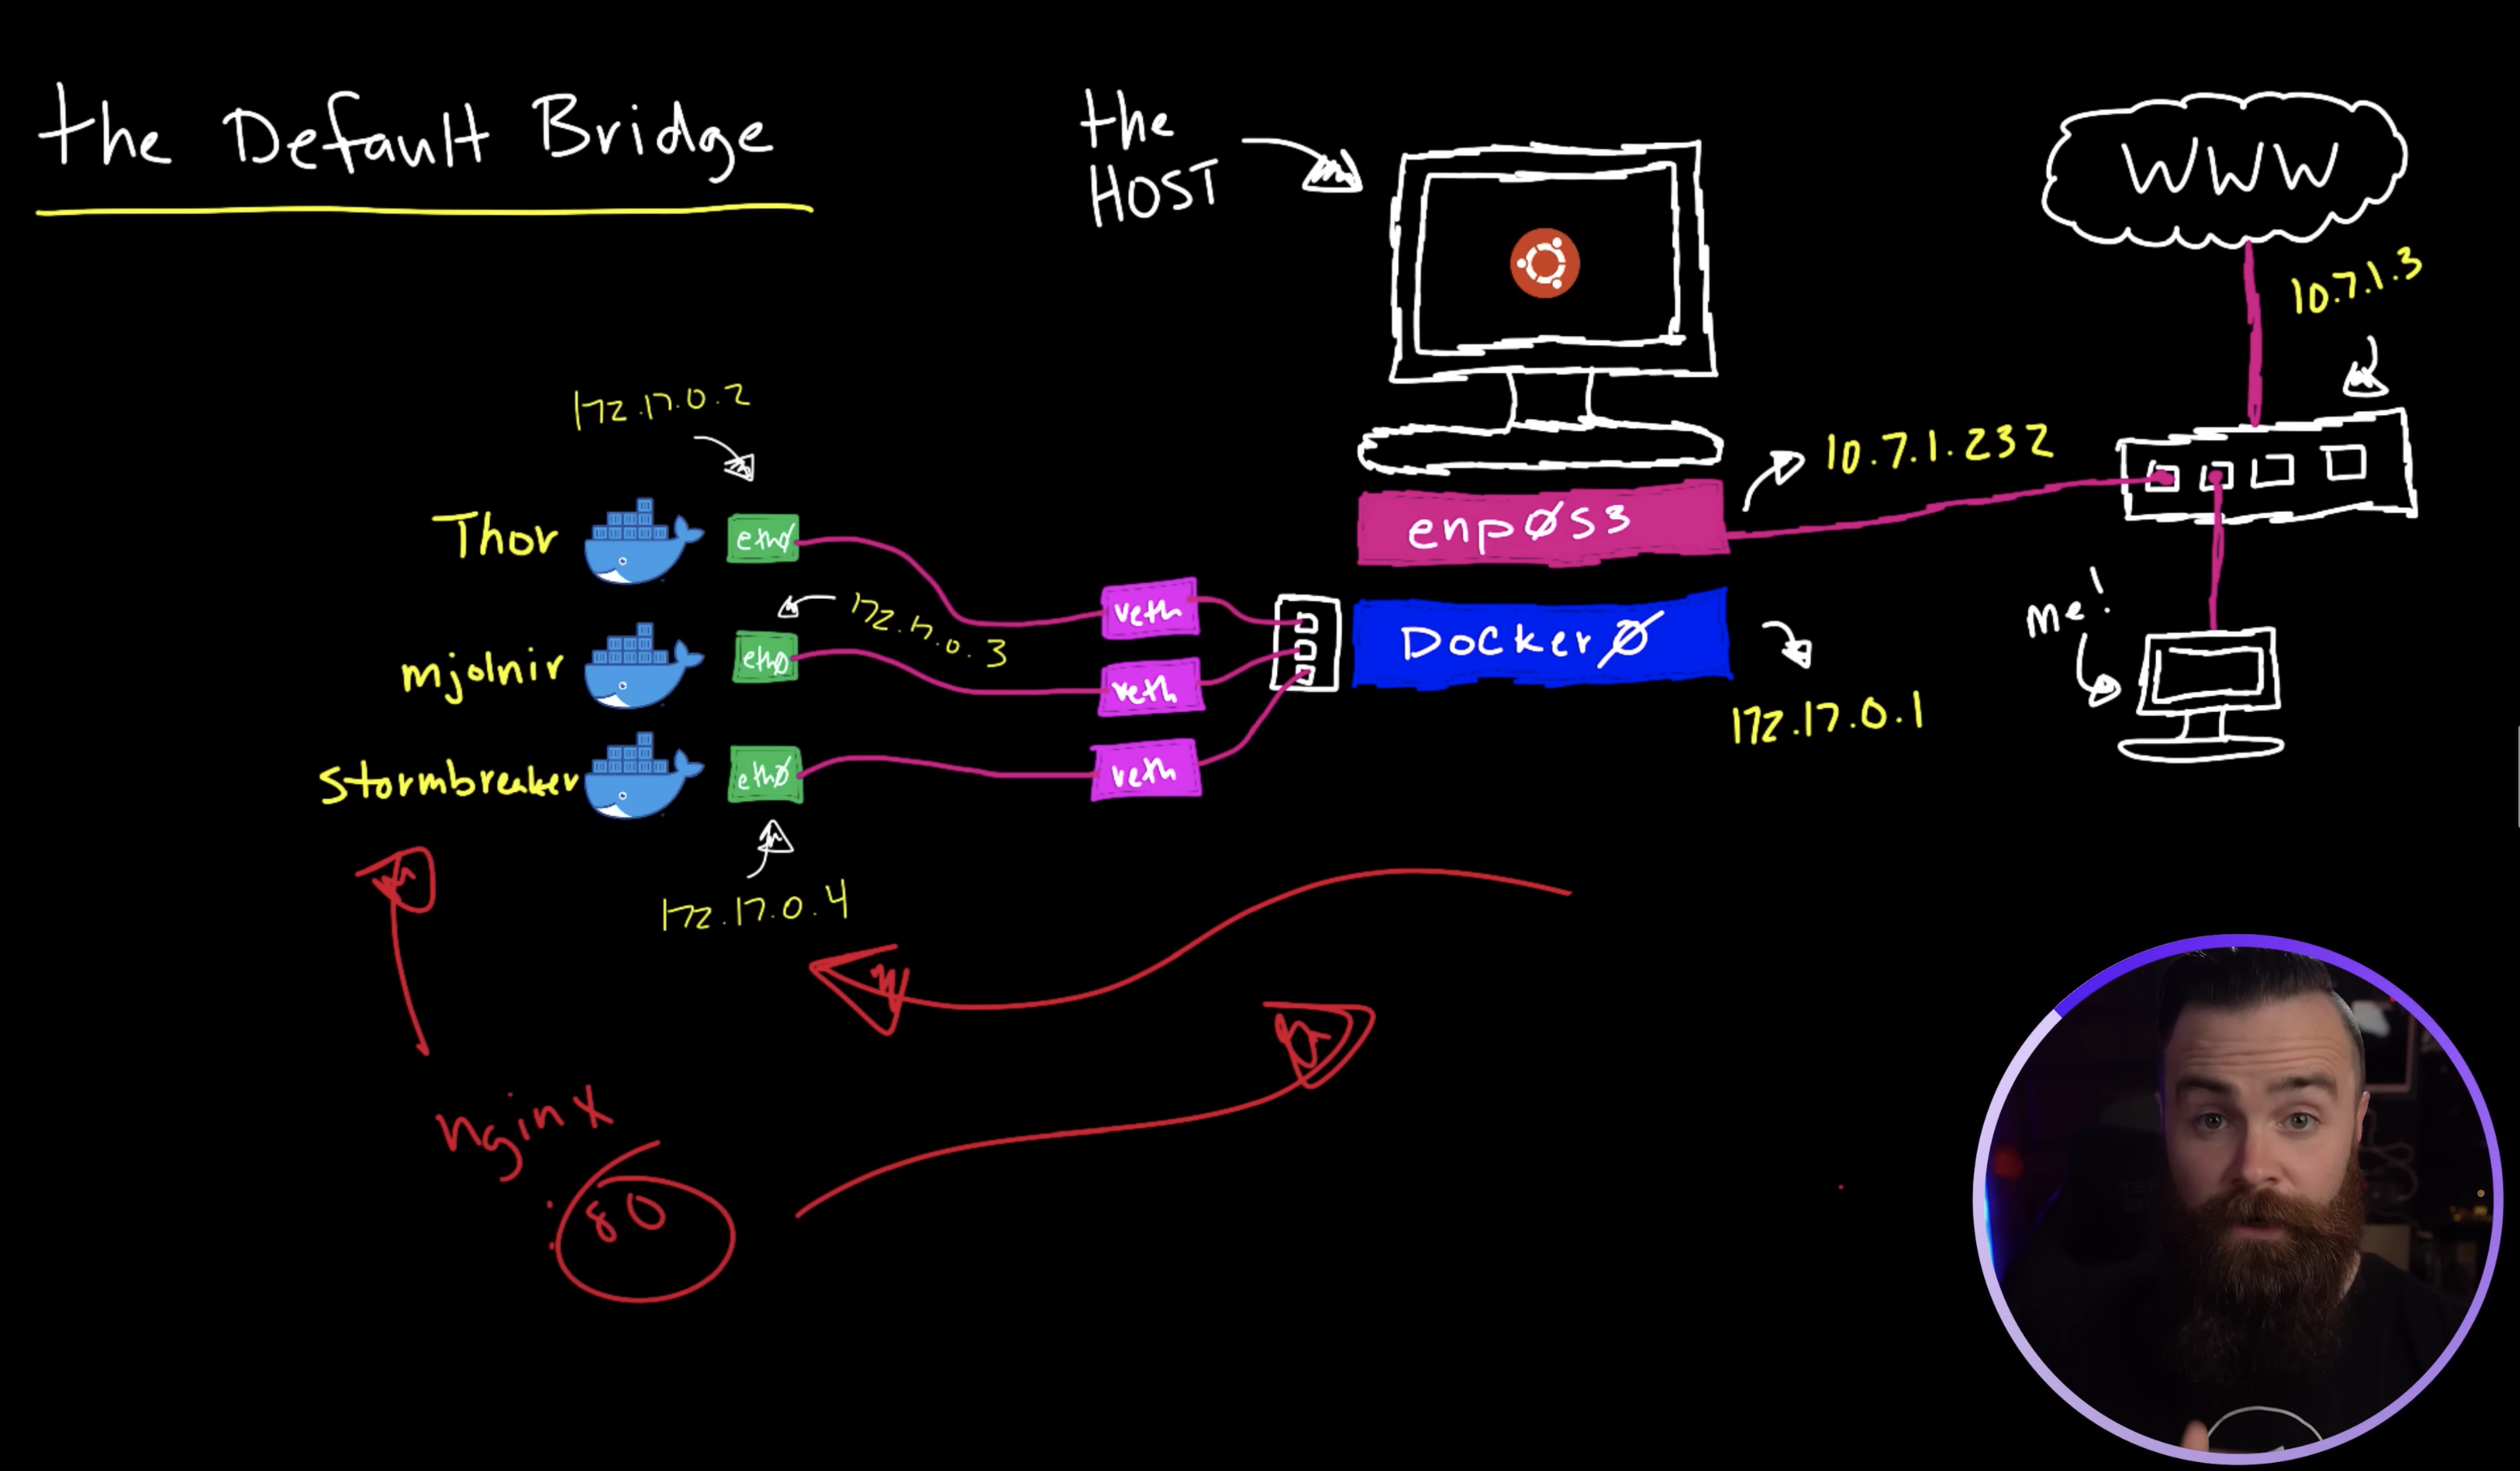 the Default Bridge
the
HOST
WWW
10.7.1.3
172.17.0.2
10.7.1.232
Thor
eth0
enp0s3
veth
Docker0
172.17.0.3
me!
mjolnir
eth0
veth
172.17.0.1
stormbreaker
eth0
veth
172.17.0.4
nginx
80